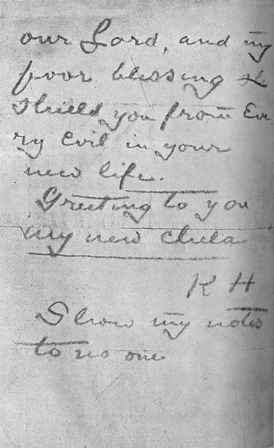 our Lord, and my
poor blessing
shield you from Eve
ry Evil in your
new life.
Greeting to you
my new chela
K H
Show my notes
to no one